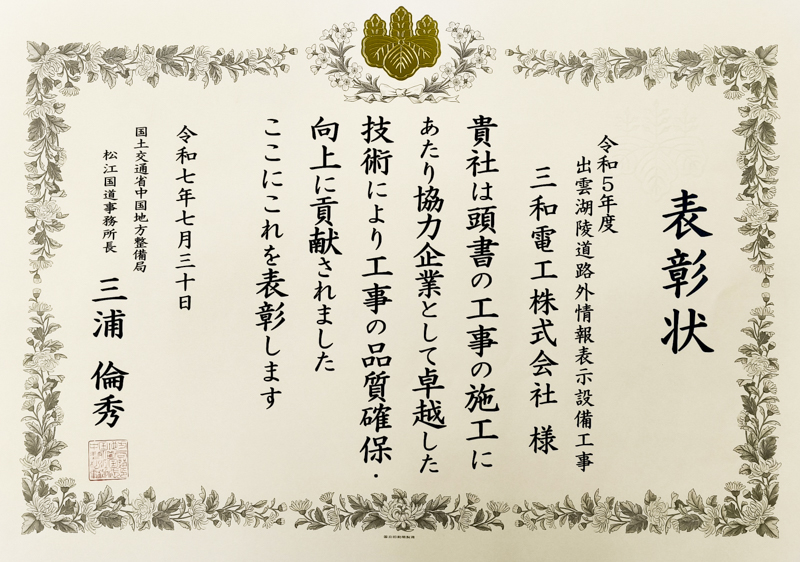 表彰状
令和5年度
出雲湖陵道路外情報表示設備工事
三和電工株式会社 様
貴社は頭書の工事の施工に
あたり協力企業として卓越した
技術により工事の品質確保・
向上に貢献されました
ここにこれを表彰します
令和七年七月三十日
国土交通省中国地方整備局
松江国道事務所長
三浦 倫秀